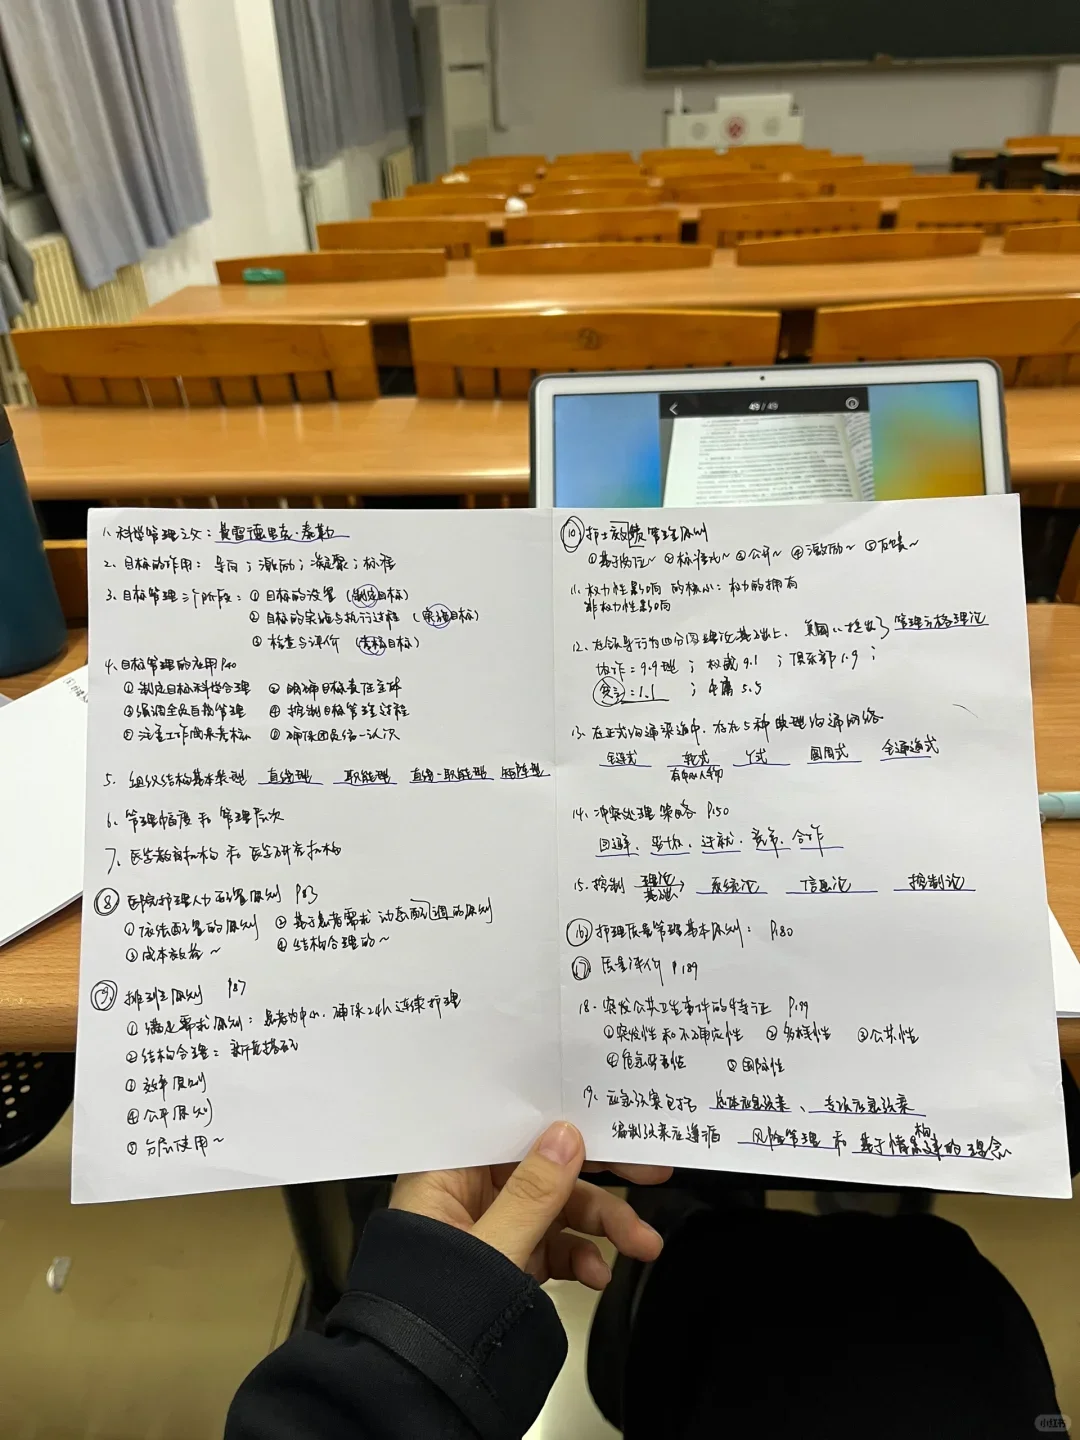 49/49
1. 科学管理之父：费雷德里克·泰勒
2. 目标的作用：导向；激励；凝聚；标准
3. 目标管理三个阶段：① 目标的设置（制定目标）
② 目标的实施与执行过程（实施目标）
③ 检查与评价（考核目标）
4. 目标管理的应用 P40
① 制定目标科学合理 ② 明确目标责任主体
③ 强调全员自我管理 ④ 控制目标管理过程
⑤ 注重工作成果考核 ⑥ 确保团员统一认识
5. 组织结构基本类型 直线型 职能型 直线-职能型 矩阵型
6. 管理幅度和管理层次
7. 医学教育机构 和 医学研究机构
⑧ 医院护理人力配置原则 P83
① 依法配置的原则 ② 基于患者需求动态配调的原则
③ 成本效益~ ④ 结构合理的~
⑨ 排班原则 P87
① 满足需求原则：患者为中心，确保24h连续护理
② 结构合理：新老搭配
③ 效率原则
④ 公开原则
⑤ 分层使用~
⑩ 护士绩效管理原则
① 基于岗位~ ② 标准化~ ③ 公开~ ④ 激励~ ⑤ 反馈~
11. 权力性影响的核心：权力的拥有
非权力性影响
12. 在领导行为四分图理论基础上，美国··提出了管理方格理论
协作：9.9型；权威9.1；俱乐部1.9；
1.1；中庸5.5
13. 在正式沟通渠道中，存在5种典型沟通网络
全链式 轮式 Y式 圆周式 全通道式
有中心人物
14. 冲突处理策略 P150
回避、妥协、迁就、竞争、合作
15. 控制 理论基础 系统论 信息论 控制论
⑯ 护理质量管理基本原则：P180
⑰ 质量评价 P189
18. 突发公共卫生事件的特征 P199
① 突发性和不确定性 ② 多样性 ③ 公共性
④ 危害严重性 ⑤ 国际性
19. 应急预案包括 总体应急预案、专项应急预案
编制预案应遵循 风险管理 和 基于情景构建的理念
小红书